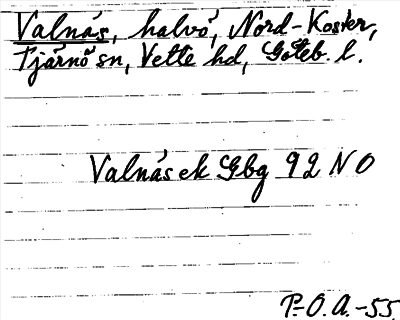 Valnäs, halvö, Nord-Koster,
Tjärnö sn, Vette hd, Göteb. l.
Valnäs ek Gbg 92 NO
P.-O. A. -55.